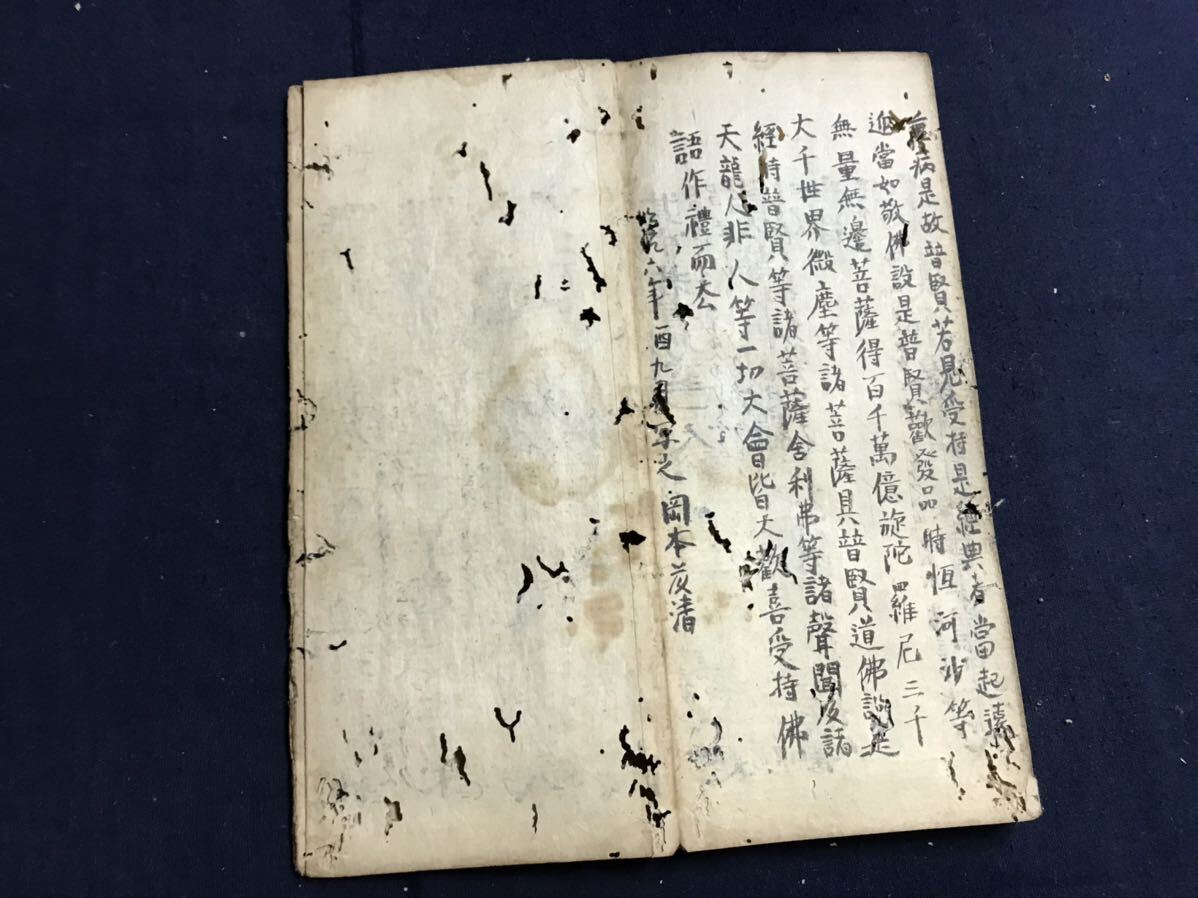 病是故普賢若見受持是經典者當起遠
迎當如敬佛說是普賢勸發品時恒河沙等
無量無邊菩薩得百千萬億旋陀羅尼三千
大千世界微塵等諸菩薩具普賢道佛說是
經時普賢等諸菩薩舍利弗等諸聲聞及諸
天龍人非人等一切大會皆大歡喜受持佛
語作禮而去
六年酉九月 之 岡本